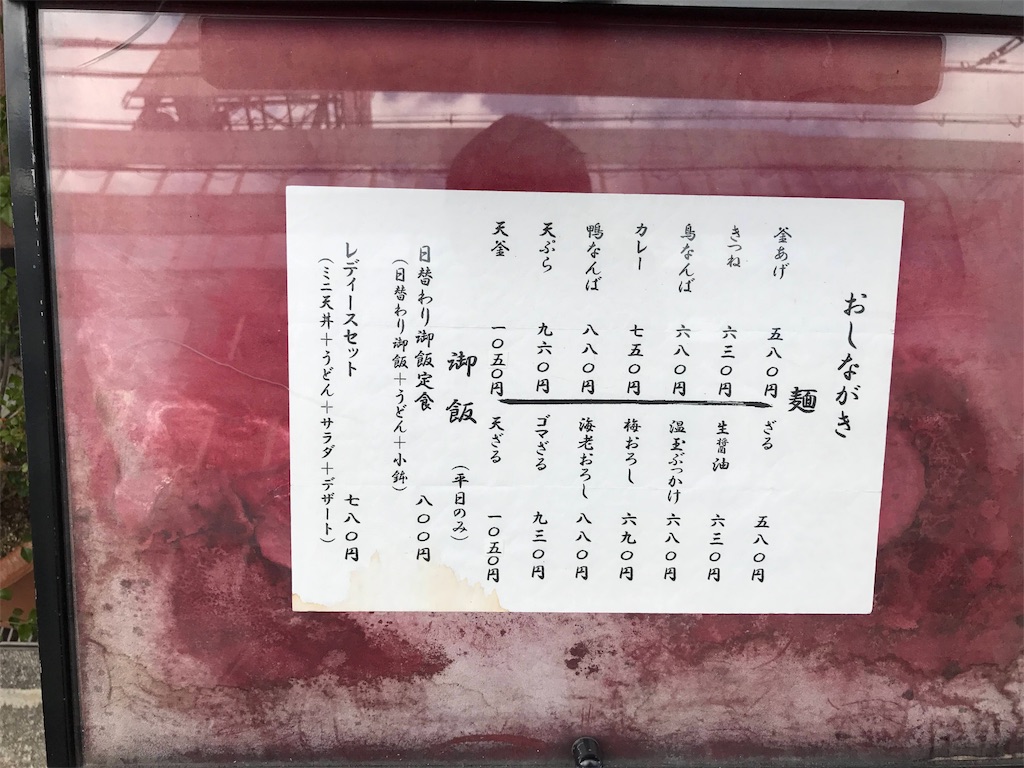 おしながき
麺
釜あげ 五八〇円
きつね 六三〇円
鳥なんば 六八〇円
カレー 七五〇円
鴨なんば 八八〇円
天ぷら 九六〇円
天釜 一〇五〇円
ざる 五八〇円
生醤油 六三〇円
温玉ぶっかけ 六八〇円
梅おろし 六九〇円
海老おろし 八八〇円
ゴマざる 九三〇円
天ざる 一〇五〇円
御飯 (平日のみ)
日替わり御飯定食 八〇〇円
(日替わり御飯+うどん+小鉢)
レディースセット 七八〇円
(ミニ天丼+うどん+サラダ+デザート)